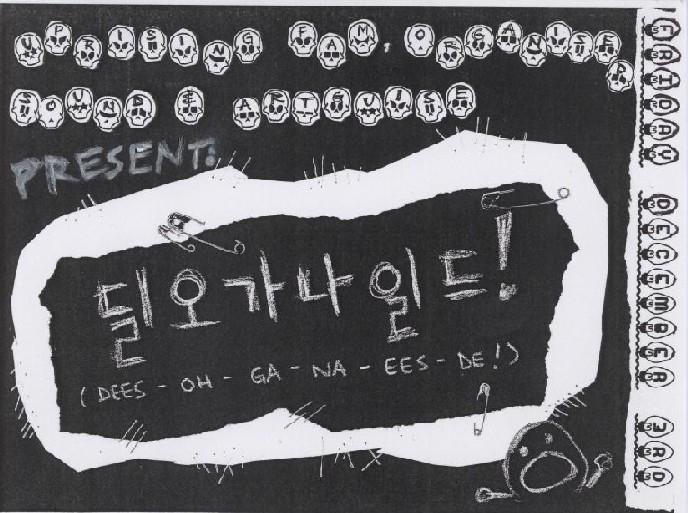 UPRISING FAM, ORGANISED
SOUND &
PRESENT:
딜오가나일드!
(DEES - OH - GA - NA - EES - DE!)
FRIDAY DECEMBER 3RD